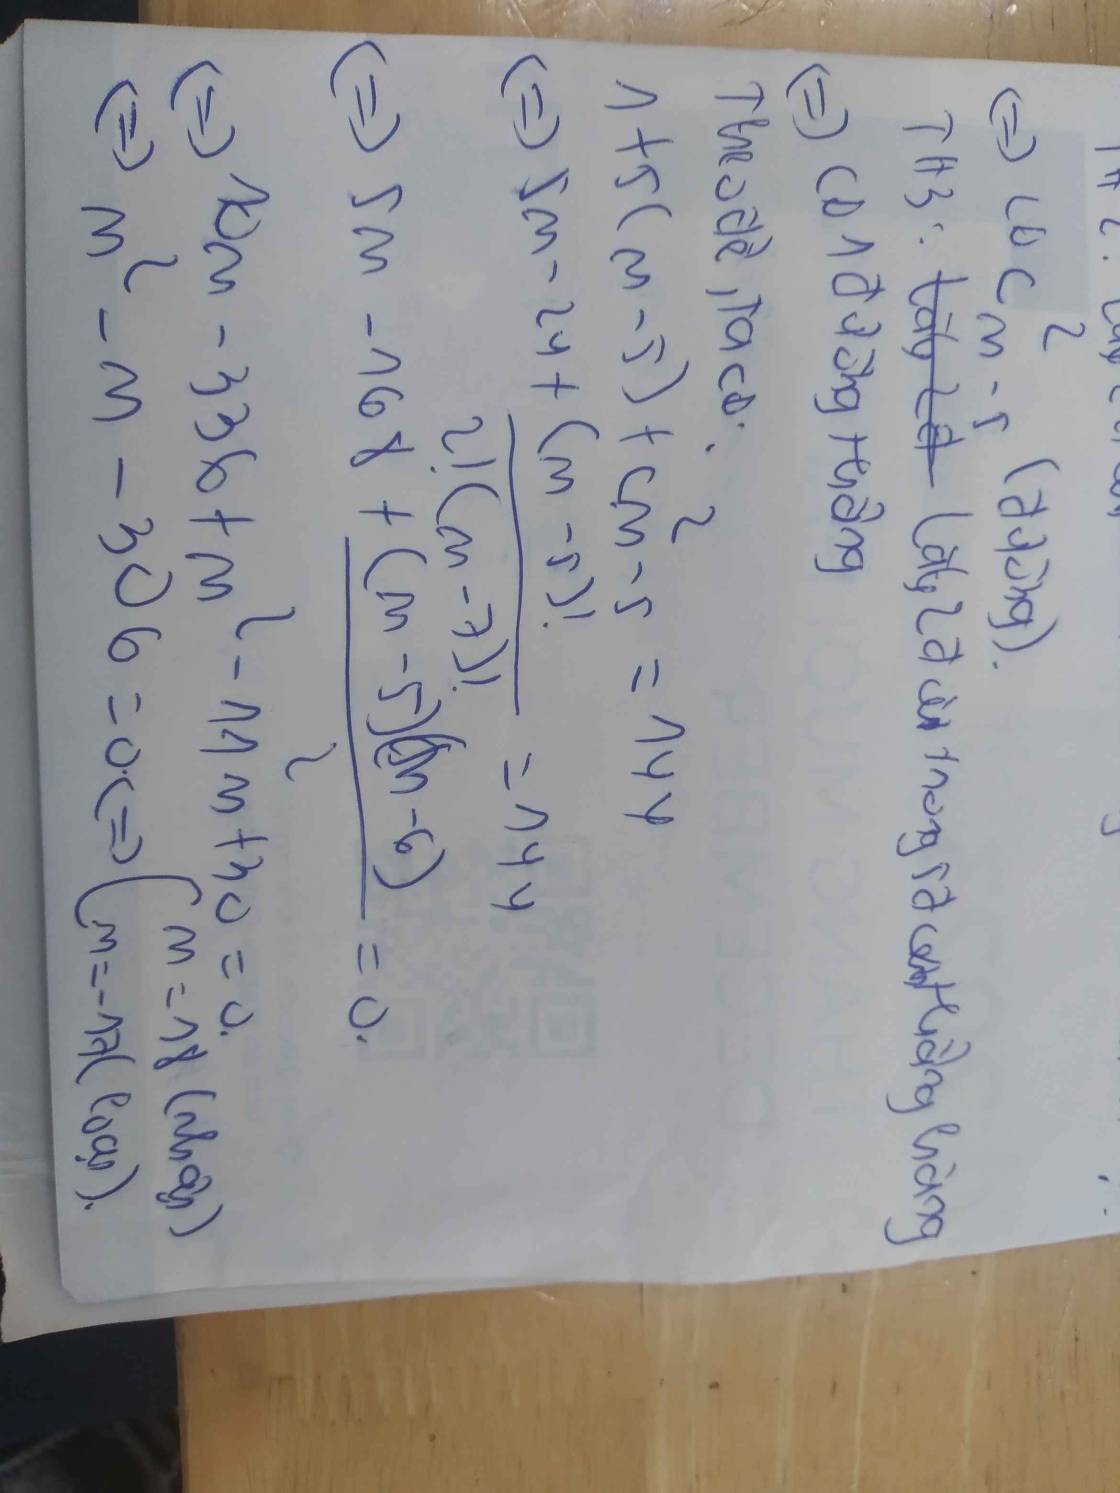 (=) có C²ₙ₋₅ (đường).
TH3: lấy 2đ lấy 2đ còn trong 5đ còn thẳng hàng
(=) có 1 đường thẳng
Theo đề, ta có:
1+5(n-5)+C²ₙ₋₅ = 144
(=) 5n-24+ (n-5)!/2!(n-7)! = 144
(=) 5n-168+ (n-5)(n-6)/2 = 0.
(=) 10n-336+n²-11n+30=0.
(=) n²-n-306=0. (=) [n=18 (nhận)
[n=-17 (loại).